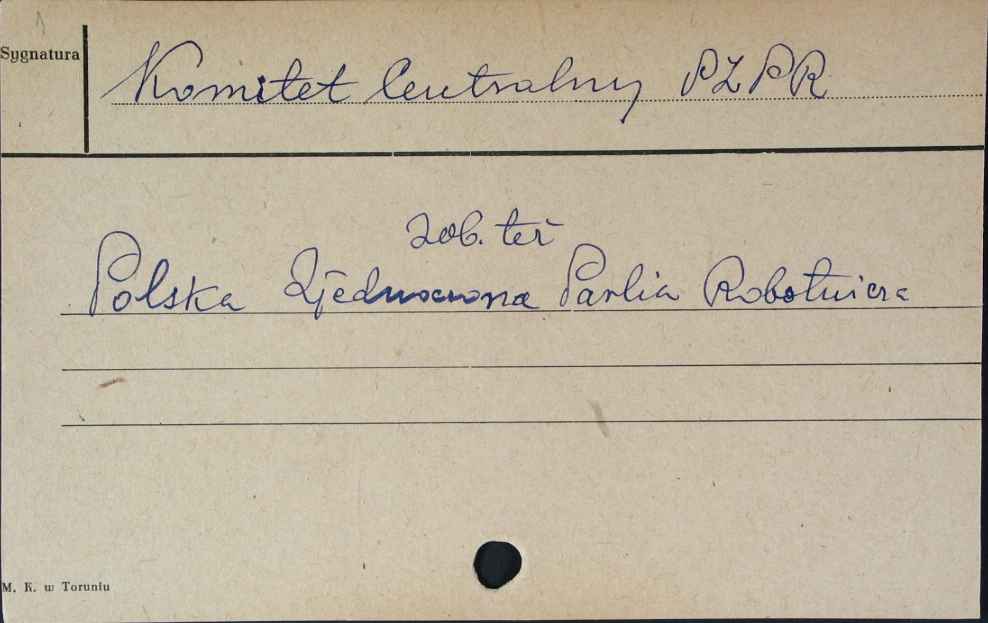 Sygnatura
Komitet Centralny PZPR
zob. też
Polska Zjednoczona Partia Robotnicza
M. K. w Toruniu